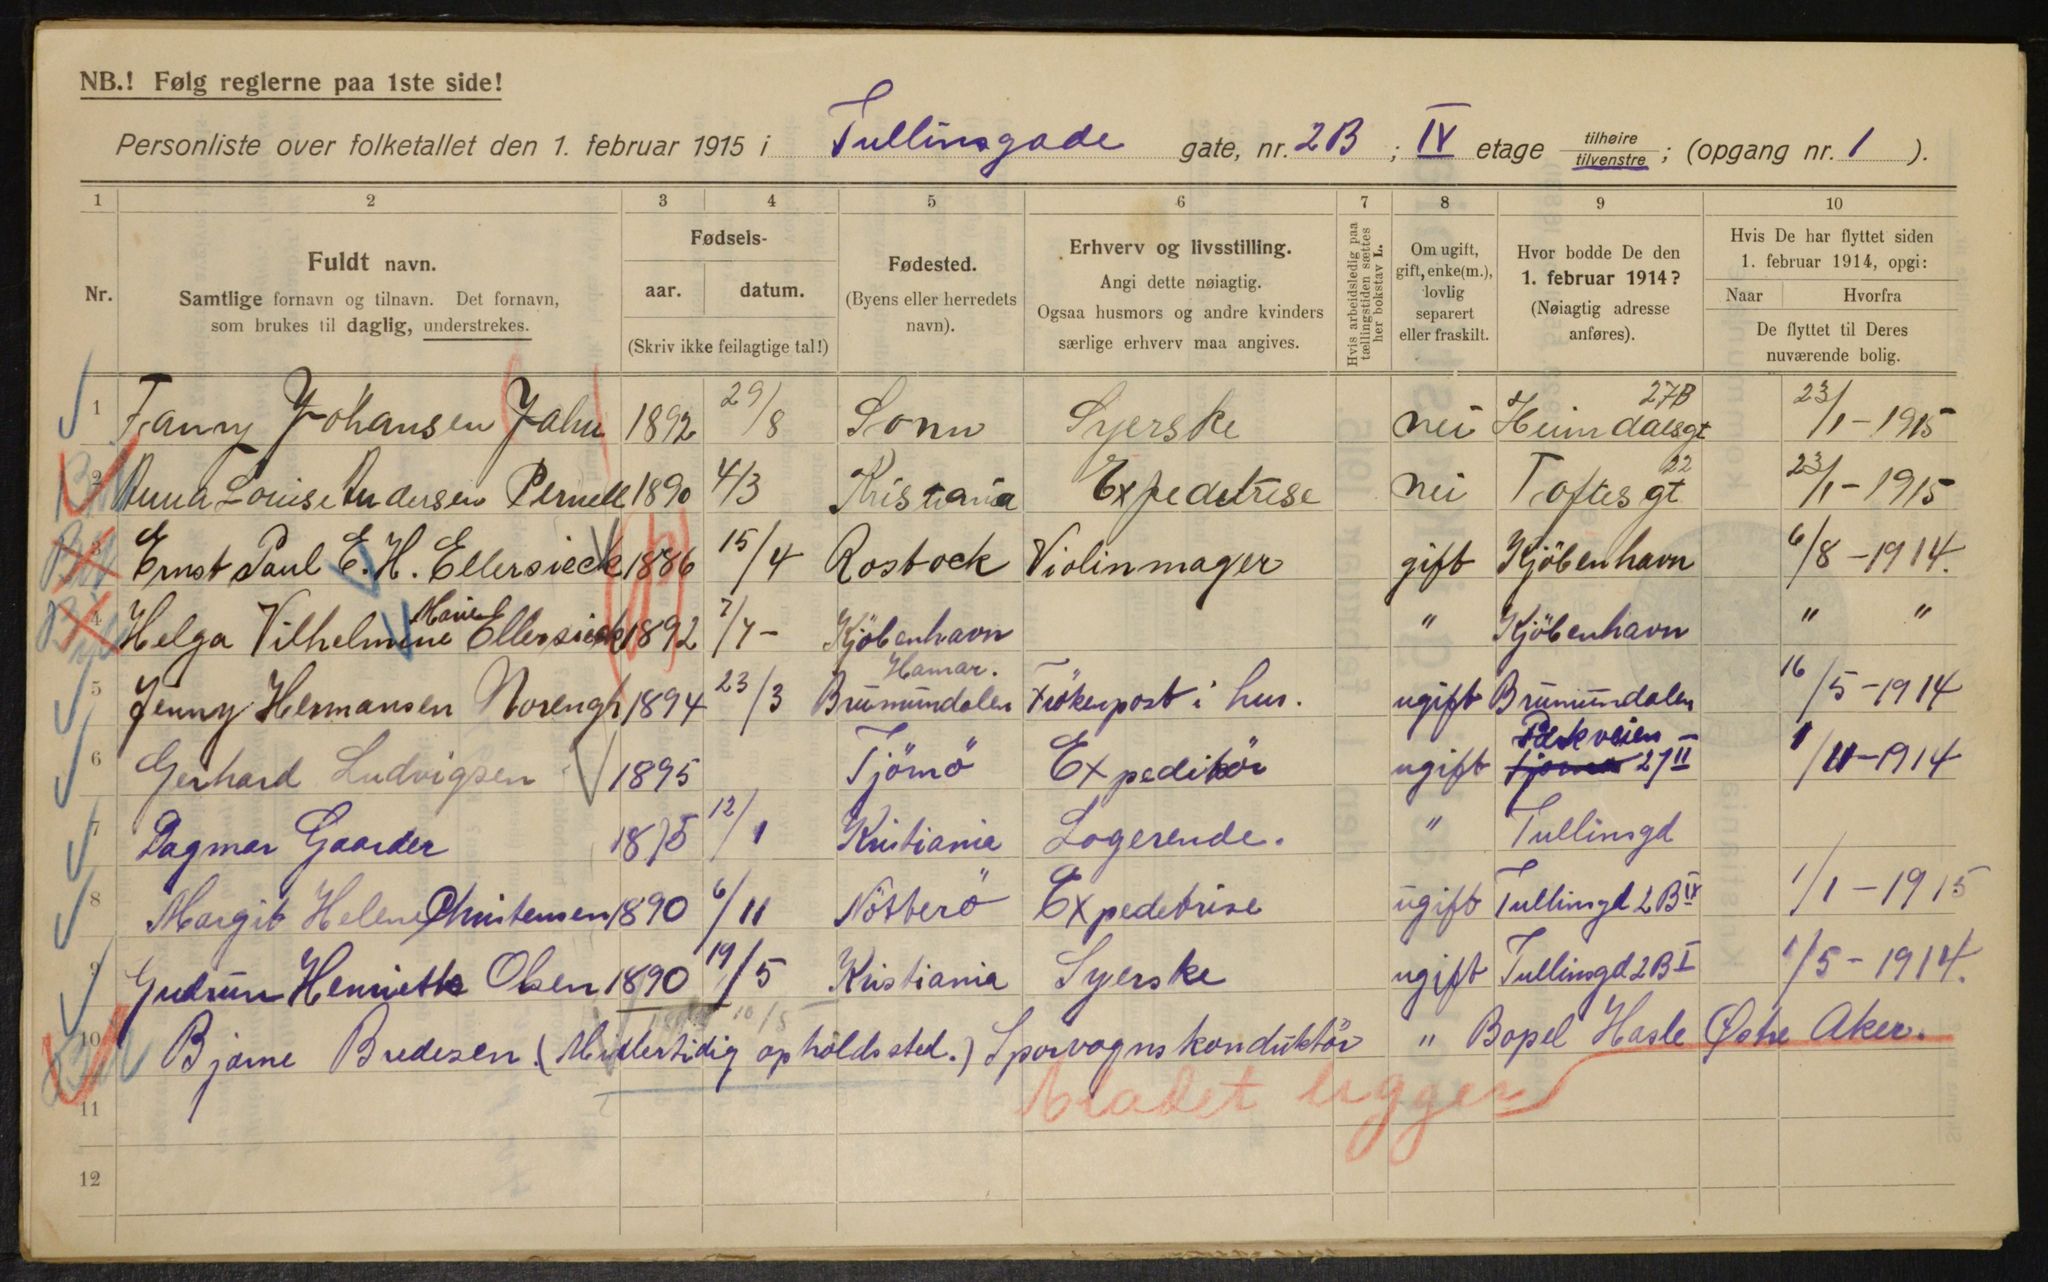 NB.! Følg reglerne paa 1ste side!
Personliste over folketallet den 1. februar 1915 i Tullinsgade gate, nr. 2B ; IV etage tilhøire tilvenstre ; (opgang nr. 1 ).
1 2 3 4 5 6 7 8 9 10
Nr.
Fuldt navn.
Samtlige fornavn og tilnavn. Det fornavn,
som brukes til daglig, understrekes.
Fødsels-
aar. datum.
(Skriv ikke feilagtige tal!)
Fødested.
(Byens eller herredets
navn).
Erhverv og livsstilling.
Angi dette nøiagtig.
Ogsaa husmors og andre kvinders
særlige erhverv maa angives.
Hvis arbeidsledig paa
tællingstiden sættes
her bokstav L.
Om ugift,
gift, enke(m.),
lovlig
separert
eller fraskilt.
Hvor bodde De den
1. februar 1914?
(Nøiagtig adresse
anføres).
Hvis De har flyttet siden
1. februar 1914, opgi:
Naar Hvorfra
De flyttet til Deres
nuværende bolig.
1 Fanny Johansen Jahn 1892 29/8 Sonn Syerske nei Heimdalsgt 27B 23/1-1915
2 Anna Louise Andersen Pernell 1890 4/3 Kristiania Expeditrise nei Toftesgt 22 23/1-1915
3 Ernst Paul E. H. Ellersieck 1886 15/4 Rostock Violinmager gift Kjöbenhavn 6/8-1914.
4 Helga Vilhelmine Marie Ellersieck 1892 7/7- Kjöbenhavn " Kjöbenhavn " "
5 Jenny Hermansen Norengh 1894 23/3 Brumundalen Hamar. Frökenpost i hus. ugift Brumundalen 16/5-1914
6 Gerhard Ludvigsen 1895 Tjömö Expeditör ugift Parkveien - 27 II 1/11-1914
7 Dagmar Gaarder 1875 12/1 Kristiania Logerende. " Tullinsgd
8 Margit Helene Christensen 1890 6/11 Nötterö Expeditrise ugift Tullinsgd 2B IV 1/1-1915
9 Gudrun Henriette Olsen 1890 19/5 Kristiania Syerske ugift Tullinsgd 2B I 1/5-1914.
10 Bjarne Bredesen. (Midlertidig opholdssted.) Sporvognskonduktör " Bopel Hasle Østre Aker.
11
12